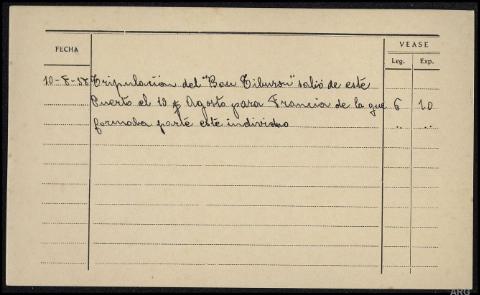 VEASE
FECHA
Leg. Exp.
10-8-38 Tripulación del "Bou Tiburon" salió de este
Puerto el 10 de Agosto para Francia de la que 6 10
formaba parte este individuo " "
ARG